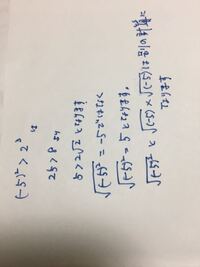 (-5)² > 2³ は
25 > 8 より
5 > 2√2 となります。
√(-5)² = -5ではなく
√(-5)² = 5 となります。
√(-5)² と √(-5) × √(-5) は別の計算に
なります